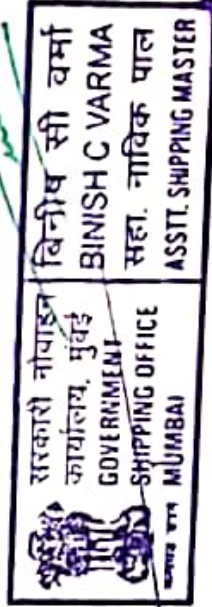 सरकारी नौवहन
कार्यालय, मुंबई
GOVERNMENT
SHIPPING OFFICE
MUMBAI
बिनीष सी वर्मा
BINISH C VARMA
सहा. नाविक पाल
ASSTT. SHIPPING MASTER